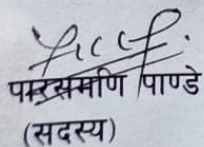 पारसमणि पाण्डे
(सदस्य)